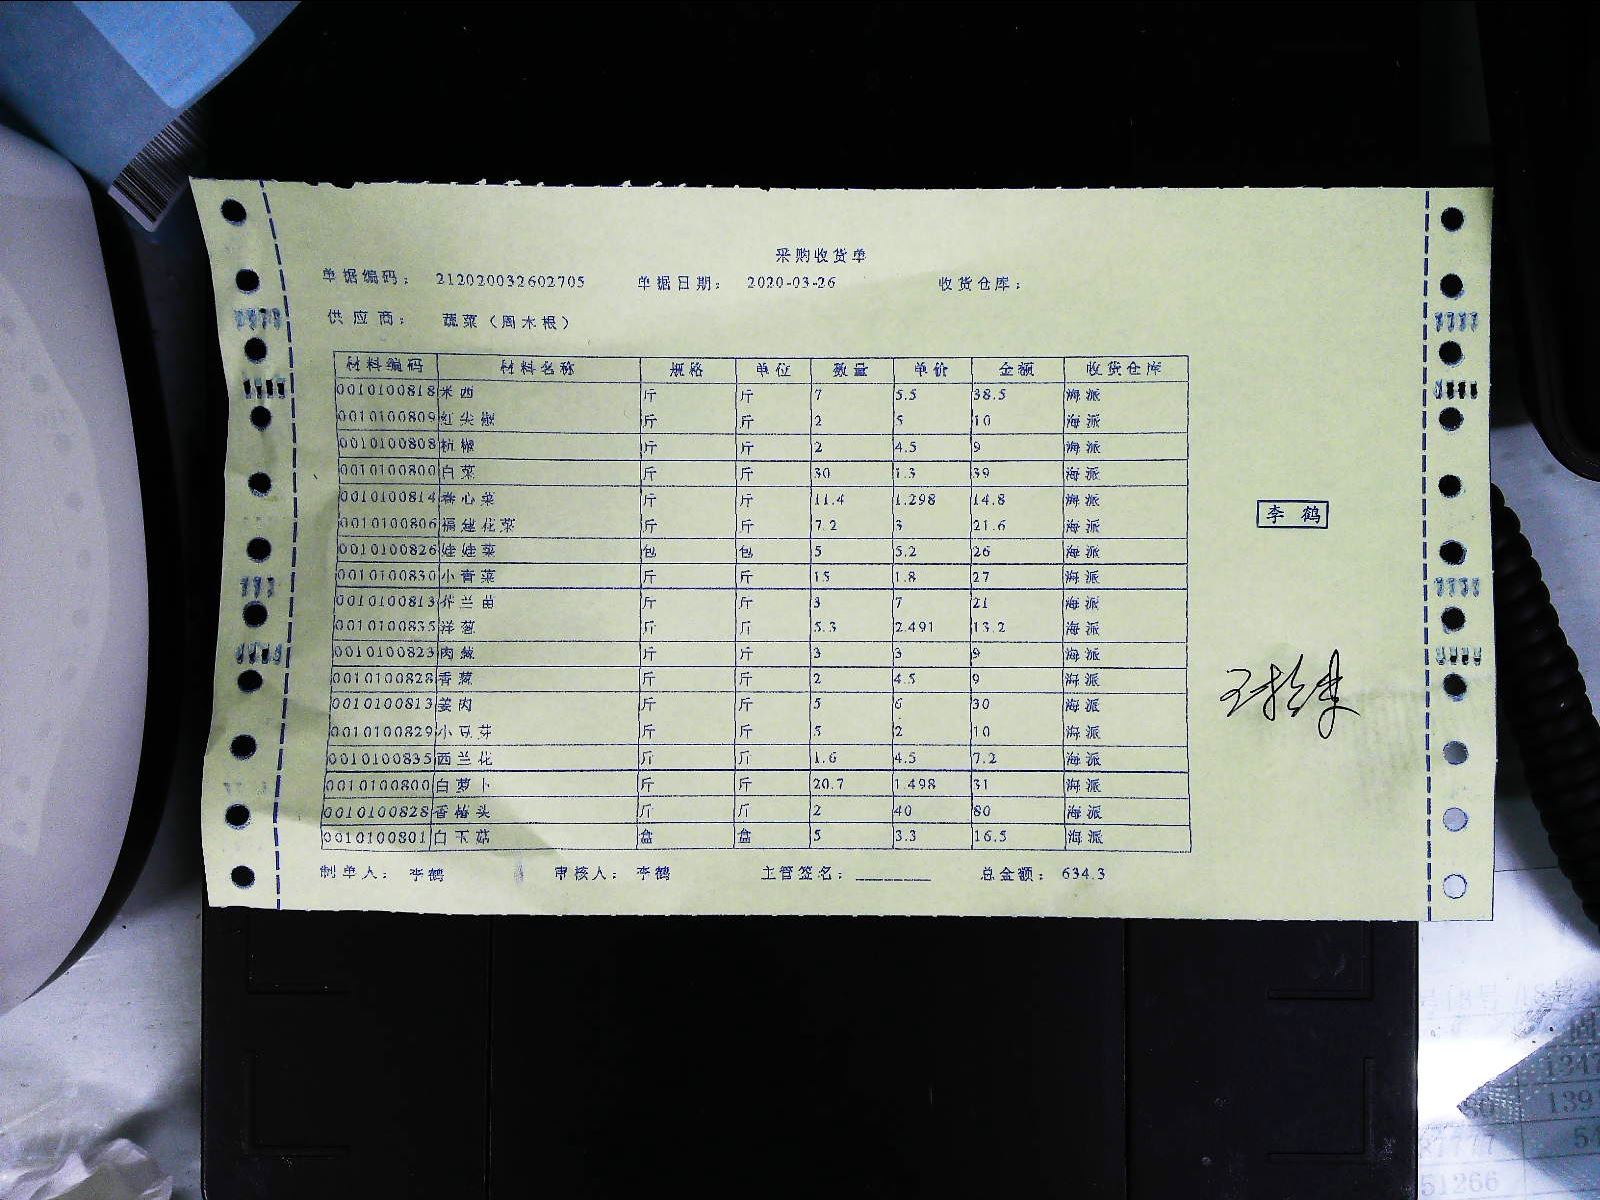 采购收货单
单据编码： 212020032602705 单据日期： 2020-03-26 收货仓库：
供应商： 蔬菜（周木根）
材料编码 材料名称 规格 单位 数量 单价 金额 收货仓库
0010100818 米西 斤 斤 7 5.5 38.5 海派
0010100809 红尖椒 斤 斤 2 5 10 海派
0010100808 杭椒 斤 斤 2 4.5 9 海派
0010100800 白菜 斤 斤 30 1.3 39 海派
0010100814 卷心菜 斤 斤 11.4 1.298 14.8 海派
0010100806 福建花菜 斤 斤 7.2 3 21.6 海派
0010100826 娃娃菜 包 包 5 5.2 26 海派
0010100830 小青菜 斤 斤 15 1.8 27 海派
0010100813 芥兰苗 斤 斤 3 7 21 海派
0010100835 洋葱 斤 斤 5.3 2.491 13.2 海派
0010100823 肉葱 斤 斤 3 3 9 海派
0010100828 香葱 斤 斤 2 4.5 9 海派
0010100813 姜肉 斤 斤 5 6 30 海派
0010100829 小豆芽 斤 斤 5 2 10 海派
0010100835 西兰花 斤 斤 1.6 4.5 7.2 海派
0010100800 白萝卜 斤 斤 20.7 1.498 31 海派
0010100828 香椿头 斤 斤 2 40 80 海派
0010100801 白玉菇 盒 盒 5 3.3 16.5 海派
制单人： 李鹤 审核人： 李鹤 主管签名： 总金额： 634.3
李鹤
51266